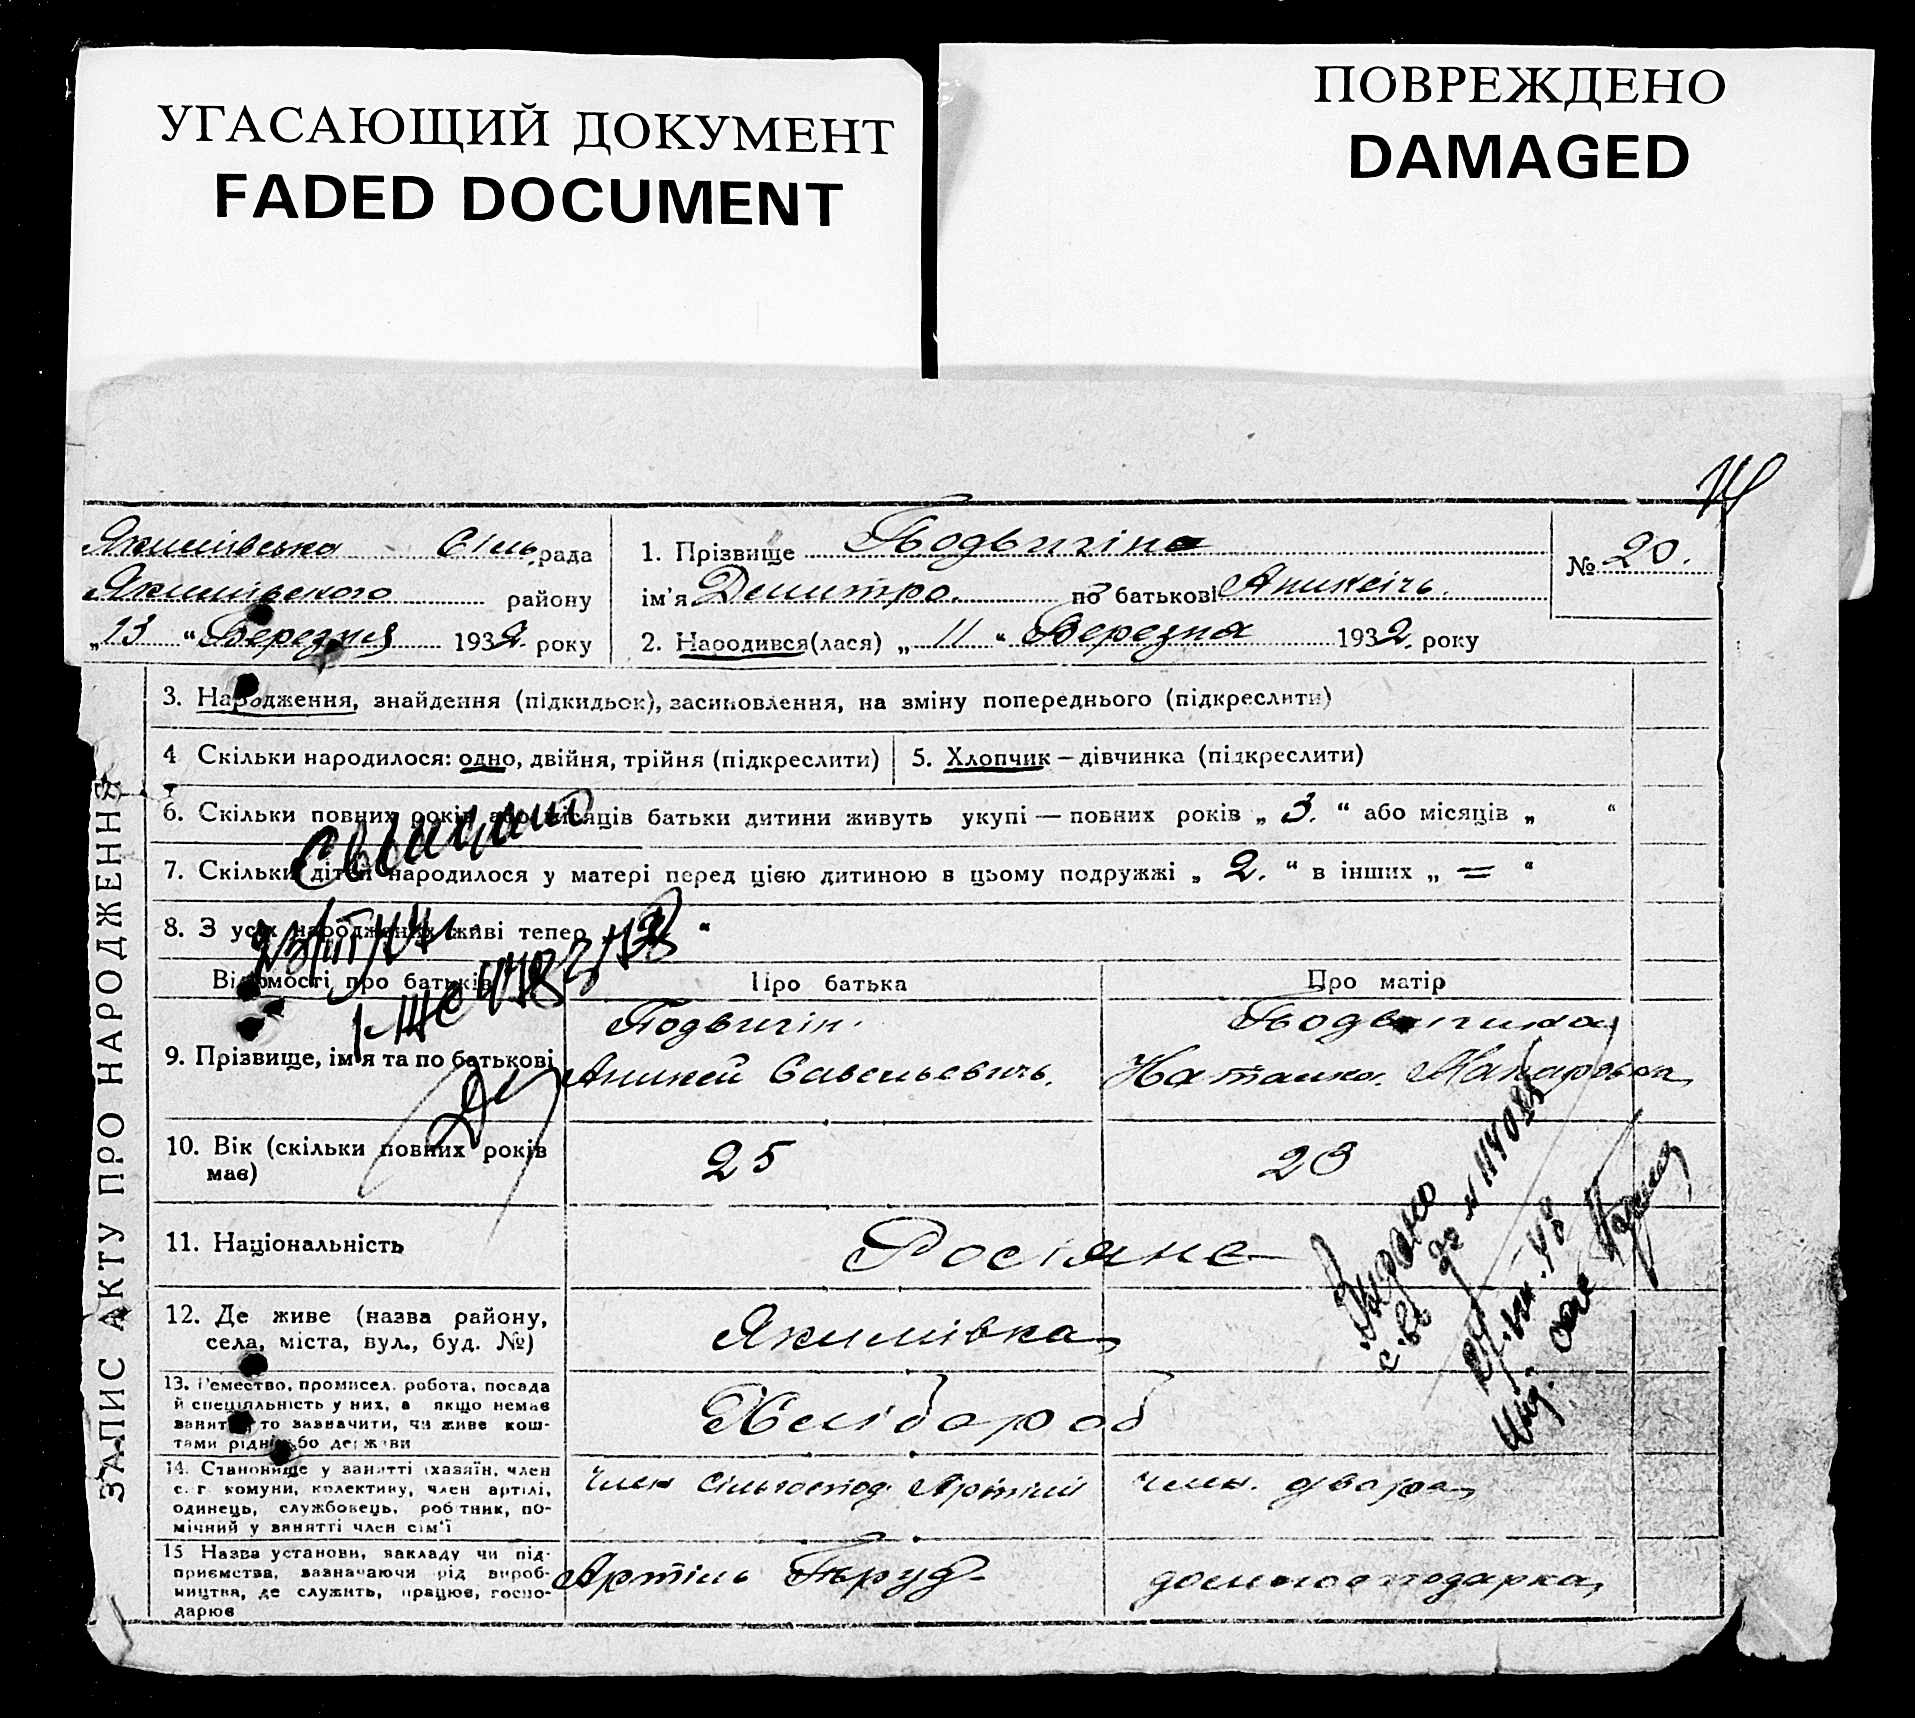 УГАСАЮЩИЙ ДОКУМЕНТ
FADED DOCUMENT
ПОВРЕЖДЕНО
DAMAGED
Якимівська Сіль.рада
Якимівського району
„13“ Березня 1932. року
1. Прізвище Подвигіна
ім'я Демитро. по батькові Аникеічь.
№ 20.
2. Народився(лася) „11“ Березня 1932. року
ЗАПИС АКТУ ПРО НАРОДЖЕННЯ
3. Народження, знайдення (підкидьок), засиновлення, на зміну попереднього (підкреслити)
4 Скільки народилося: одно, двійня, трійня (підкреслити)
5. Хлопчик — дівчинка (підкреслити)
6. Скільки повних років або місяців батьки дитини живуть укупі — повних років „3.“ або місяців „ “
7. Скільки дітей народилося у матері перед цією дитиною в цьому подружжі „2.“ в інших „=“
8. З усіх народжених живі тепер „2“
Відомості про батьків
Про батька
Про матір
9. Прізвище, ім'я та по батькові
Подвигін.
Аникей Савельевичь.
Подвигина
Наталка. Макаровна
10. Вік (скільки повних років має)
25
23
11. Національність
Росіяне
12. Де живе (назва району,
села, міста, вул., буд. №)
Якимівка
13. Ремество, промисел, робота, посада
й спеціяльність у них, а якщо немає
заняття, то зазначити, чи живе кош-
тами рідні або держави
Хлібороб
14. Становище у занятті (хазяїн, член
с. г комуни, колективу, член артілі,
одинець, службовець, робітник, по-
мічний у занятті член сім'ї
член сільгоспод Артіли
член. двора
15 Назва установи, закладу чи під-
приємства, зазначаючи рід вироб-
ництва, де служить, працює, госпо-
дарює
Артіль Труд-
домогосподарка
Видано